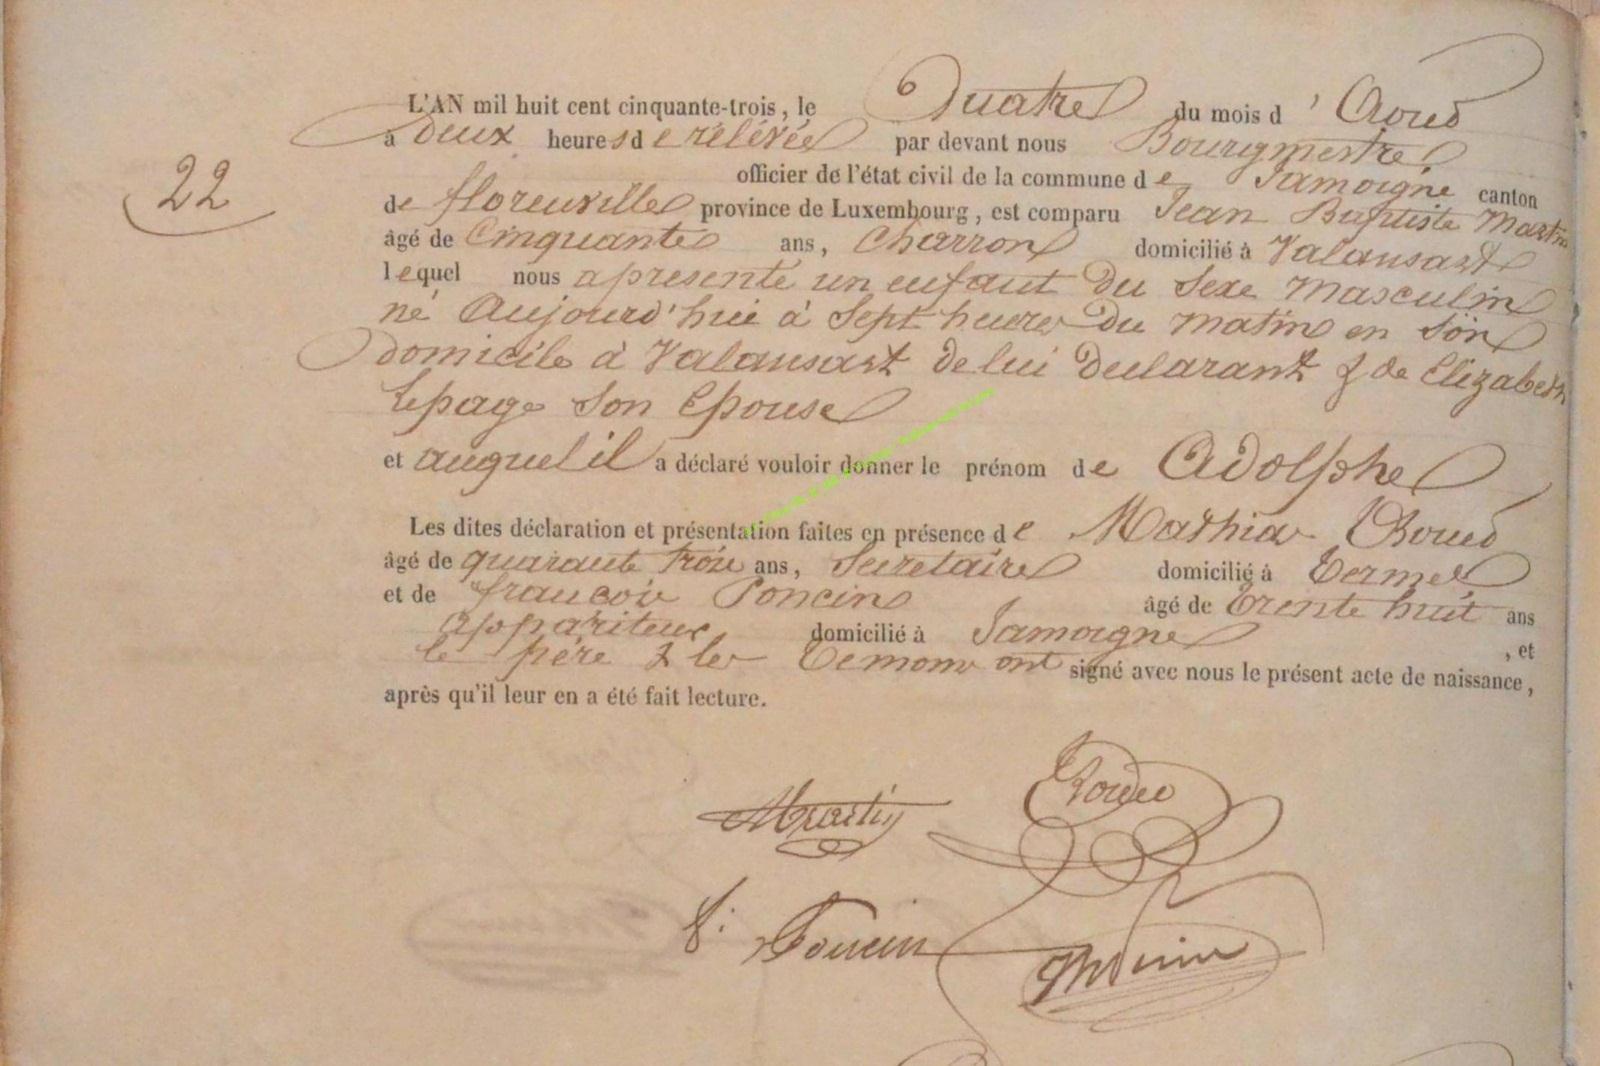 L'AN mil huit cent cinquante-trois, le Quatre du mois d'Aout
à deux heures de rélévée par devant nous Bourgmestre
22
officier de l'état civil de la commune de Jamoigne canton
de florenville province de Luxembourg, est comparu Jean Baptiste Martin
âgé de Cinquante ans, Charron domicilié à Valansart
lequel nous a présenté un enfant du sexe masculin
né Aujourd'hui à sept heures du matin en son
domicile à Valansart de lui declarant & de Elizabeth
Lepage son Epouse
et auquel il a déclaré vouloir donner le prénom de Adolphe
Les dites déclaration et présentation faites en présence de Mathias
âgé de quarante trois ans, Secretaire domicilié à Termes
et de francois Poncin âgé de trente huit ans
appariteur domicilié à Jamoigne, et
le père & les temoins ont signé avec nous le présent acte de naissance,
après qu'il leur en a été fait lecture.
Martin
f: Poncin